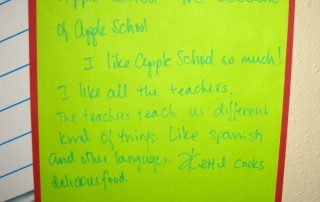 of Apple School
I like Apple School so much!
I like all the teachers.
The teachers teach us different
kind of things. Like spanish
and other languages. cooks
delicious food.